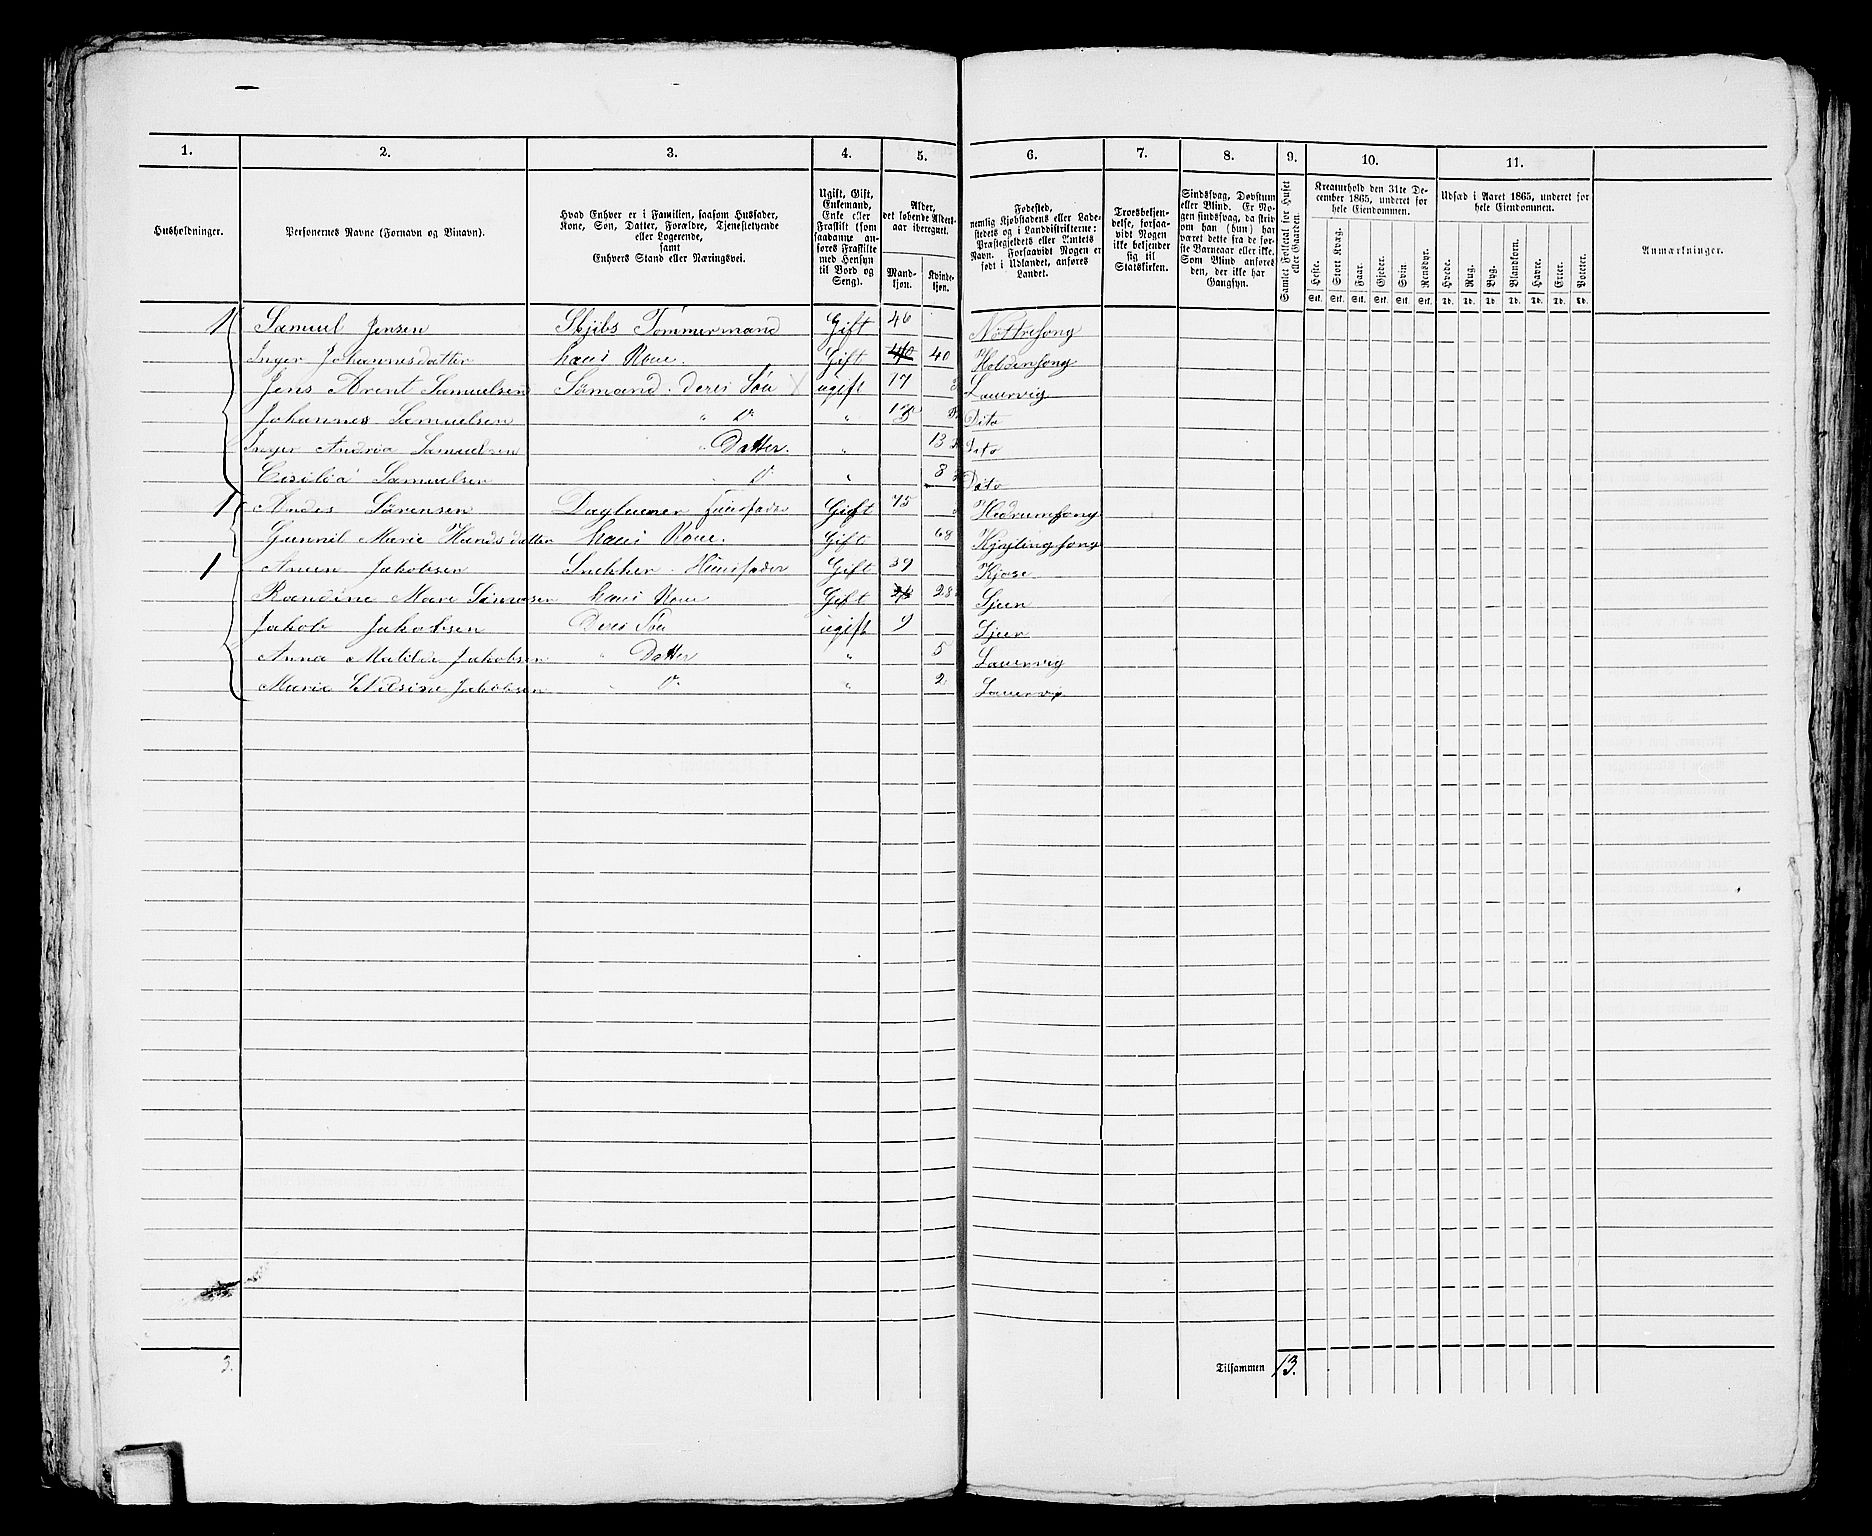 1. 2. 3. 4. 5. 6. 7. 8. 9. 10. 11.
Husholdninger.
Personernes Navne (Fornavn og Binavn).
Hvad Enhver er i Familien, saasom Husfader,
Kone, Søn, Datter, Forældre, Tjenestetyende
eller Logerende,
samt
Enhvers Stand eller Næringsvei.
Ugift, Gift,
Enkemand,
Enke eller
Fraskilt (som
saadanne an-
føres Fraskilte
med Hensyn
til Bord og
Seng).
Alder,
det løbende Alders-
aar iberegnet.
Mand-
kjøn.
Kvinde-
kjøn.
Fødested,
nemlig Kjøbstadens eller Lade-
stedets og i Landdistrikterne:
Præstegjeldets eller Amtets
Navn. Forsaavidt Nogen er
født i Udlandet, anføres
Landet.
Troesbekjen-
delse, forsaa-
vidt Nogen
ikke bekjender
sig til
Statskirken.
Sindssvag, Døvstum
eller Blind. Er No-
gen sindssvag, da skriv
om han (hun) har
været dette fra de før-
ste Barneaar eller ikke.
Som Blind anføres
den, der ikke har
Gangsyn.
Samlet Folketal for Huset
eller Gaarden.
Kreaturhold den 31te De-
cember 1865, underet for
hele Eiendommen.
Heste. Stort Kvæg. Faar. Gjeder. Svin. Rensdyr.
Stk. Stk. Stk. Stk. Stk. Stk.
Udsæd i Aaret 1865, underet for
hele Eiendommen.
Hvede. Rug. Byg. Blandkorn. Havre. Erter. Poteter.
Td. Td. Td. Td. Td. Td. Td.
Anmærkninger.
1 Samuel Jensen Skjibs Tømmermand Gift 46
Inger Johannesdatter hans Kone. Gift 40 40
Jens Arent Samuelsen Sømand. deres Søn ugift 17 Laurvig
Johannes Samuelsen " D° " Dito
Inger Andrea Samuelsen " Datter. " 13 Dito
Cesilia Samuelsen " D° " 8 Dito
1 Andes Sørensen Gift 75
Gunnil Marie Hansdatter hans Kone. Gift 68
1 Jakobsen Snekker. Huusfader Gift 39 Kjose
Randine Mare hans Kone Gift 28
Jakob Jakobsen Deres Søn ugift 9
Anna Matilde Jakobsen " Datter " 5 Laurvig
Marie Jakobsen " D° " 2 Laurvig
3.
Tilsammen 13.